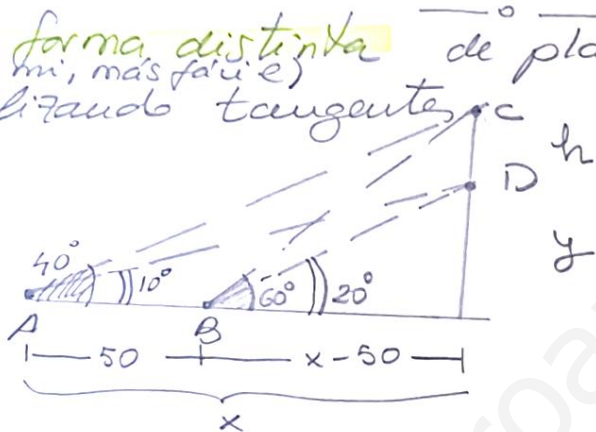 forma distinta de pla
mi, más fácil)
lizando tangentes
C
h
D
y
40° 10° 60° 20°
A B
50 x-50
x